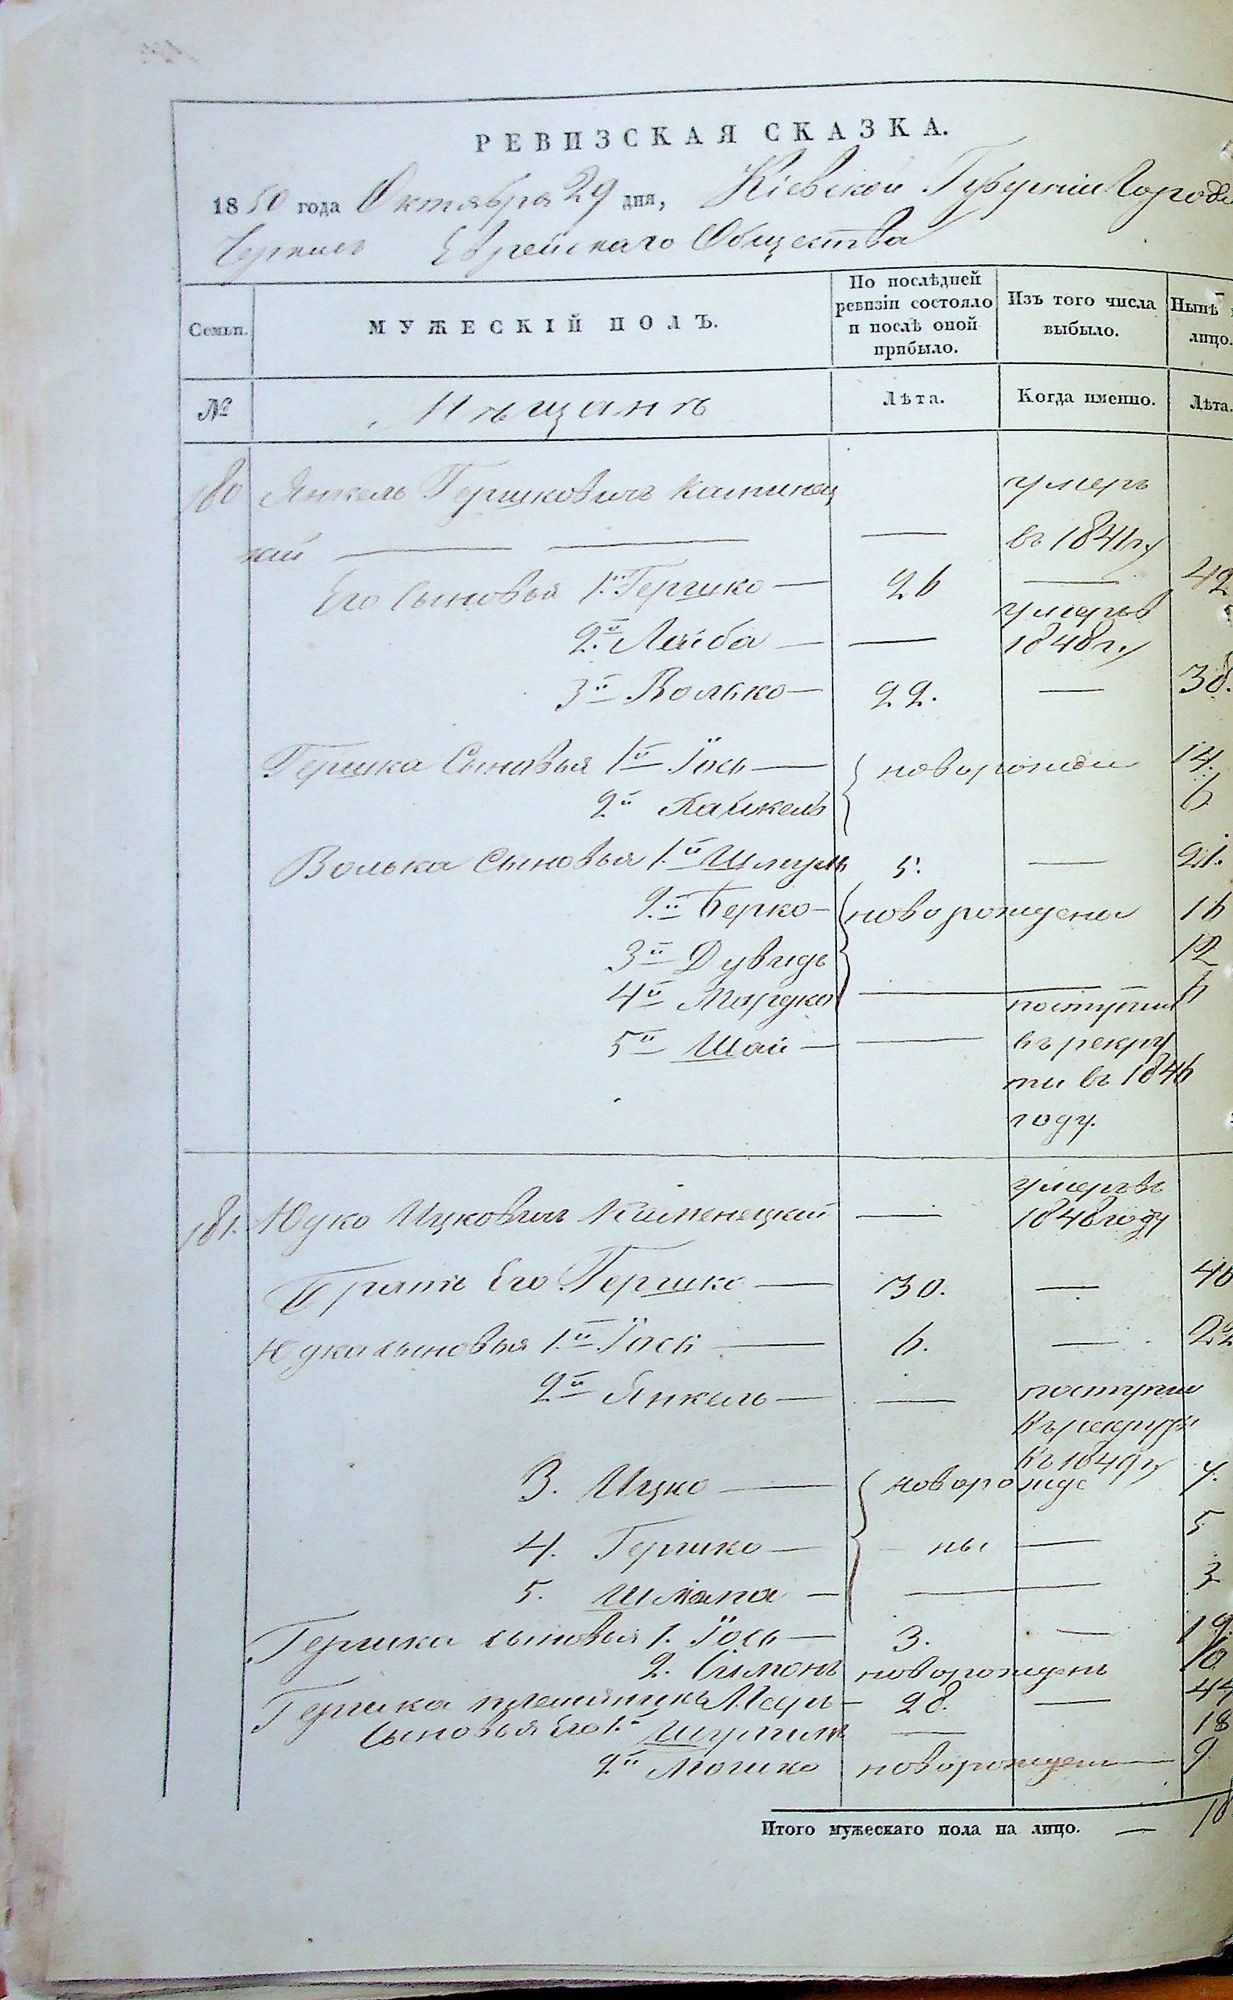 РЕВИЗСКАЯ СКАЗКА.
1850 года Октября 29 дня, Кіевской Губерніи Города
Черкасъ Еврейскаго Общества
Семьи. МУЖЕСКІЙ ПОЛЪ. По послѣдней ревизіи состояло и послѣ оной прибыло. Изъ того числа выбыло. Нынѣ на лицо.
№ Мѣщанъ Лѣта. Когда именно. Лѣта.
180 Янкель Гершковичъ Каминец умеръ
кій — — — въ 1841 г.
Его Сыновья 1й Гершко — 26 — 42
2й Лейба — — умеръ в 1848 г.
3й Волько — 22. — 38.
Гершка Сыновья 1й Іось — новорожден 14.
2й Хаимкель 6
Волька Сыновья 1й Шмуль 5. — 21.
2й Берко — новорождены 16
3й Дувидъ 12
4й Мордко — 6
5й Шай — — поступил
въ рекру
ты въ 1846
году.
181. Юдко Ицковичъ Каменецкій — умеръ въ
1848 году
Братъ Его Гершко — 30. — 46
Юдка сыновья 1й Іось — 6. — 22
2й Янкель — — поступил
въ рекруты
въ 1849 г.
3. Ицко — новорожде 7.
4. Гершко — ны — 5
5. Шлема — — 3
Гершка сыновья 1. Іось — 3. — 19.
2. Симонъ новорожденъ 10
Гершка племянникъ Меер — 28. — 44
Сыновья Его 1й — 18
2й Мошко новорожден — 9
Итого мужескаго пола на лицо. — 18